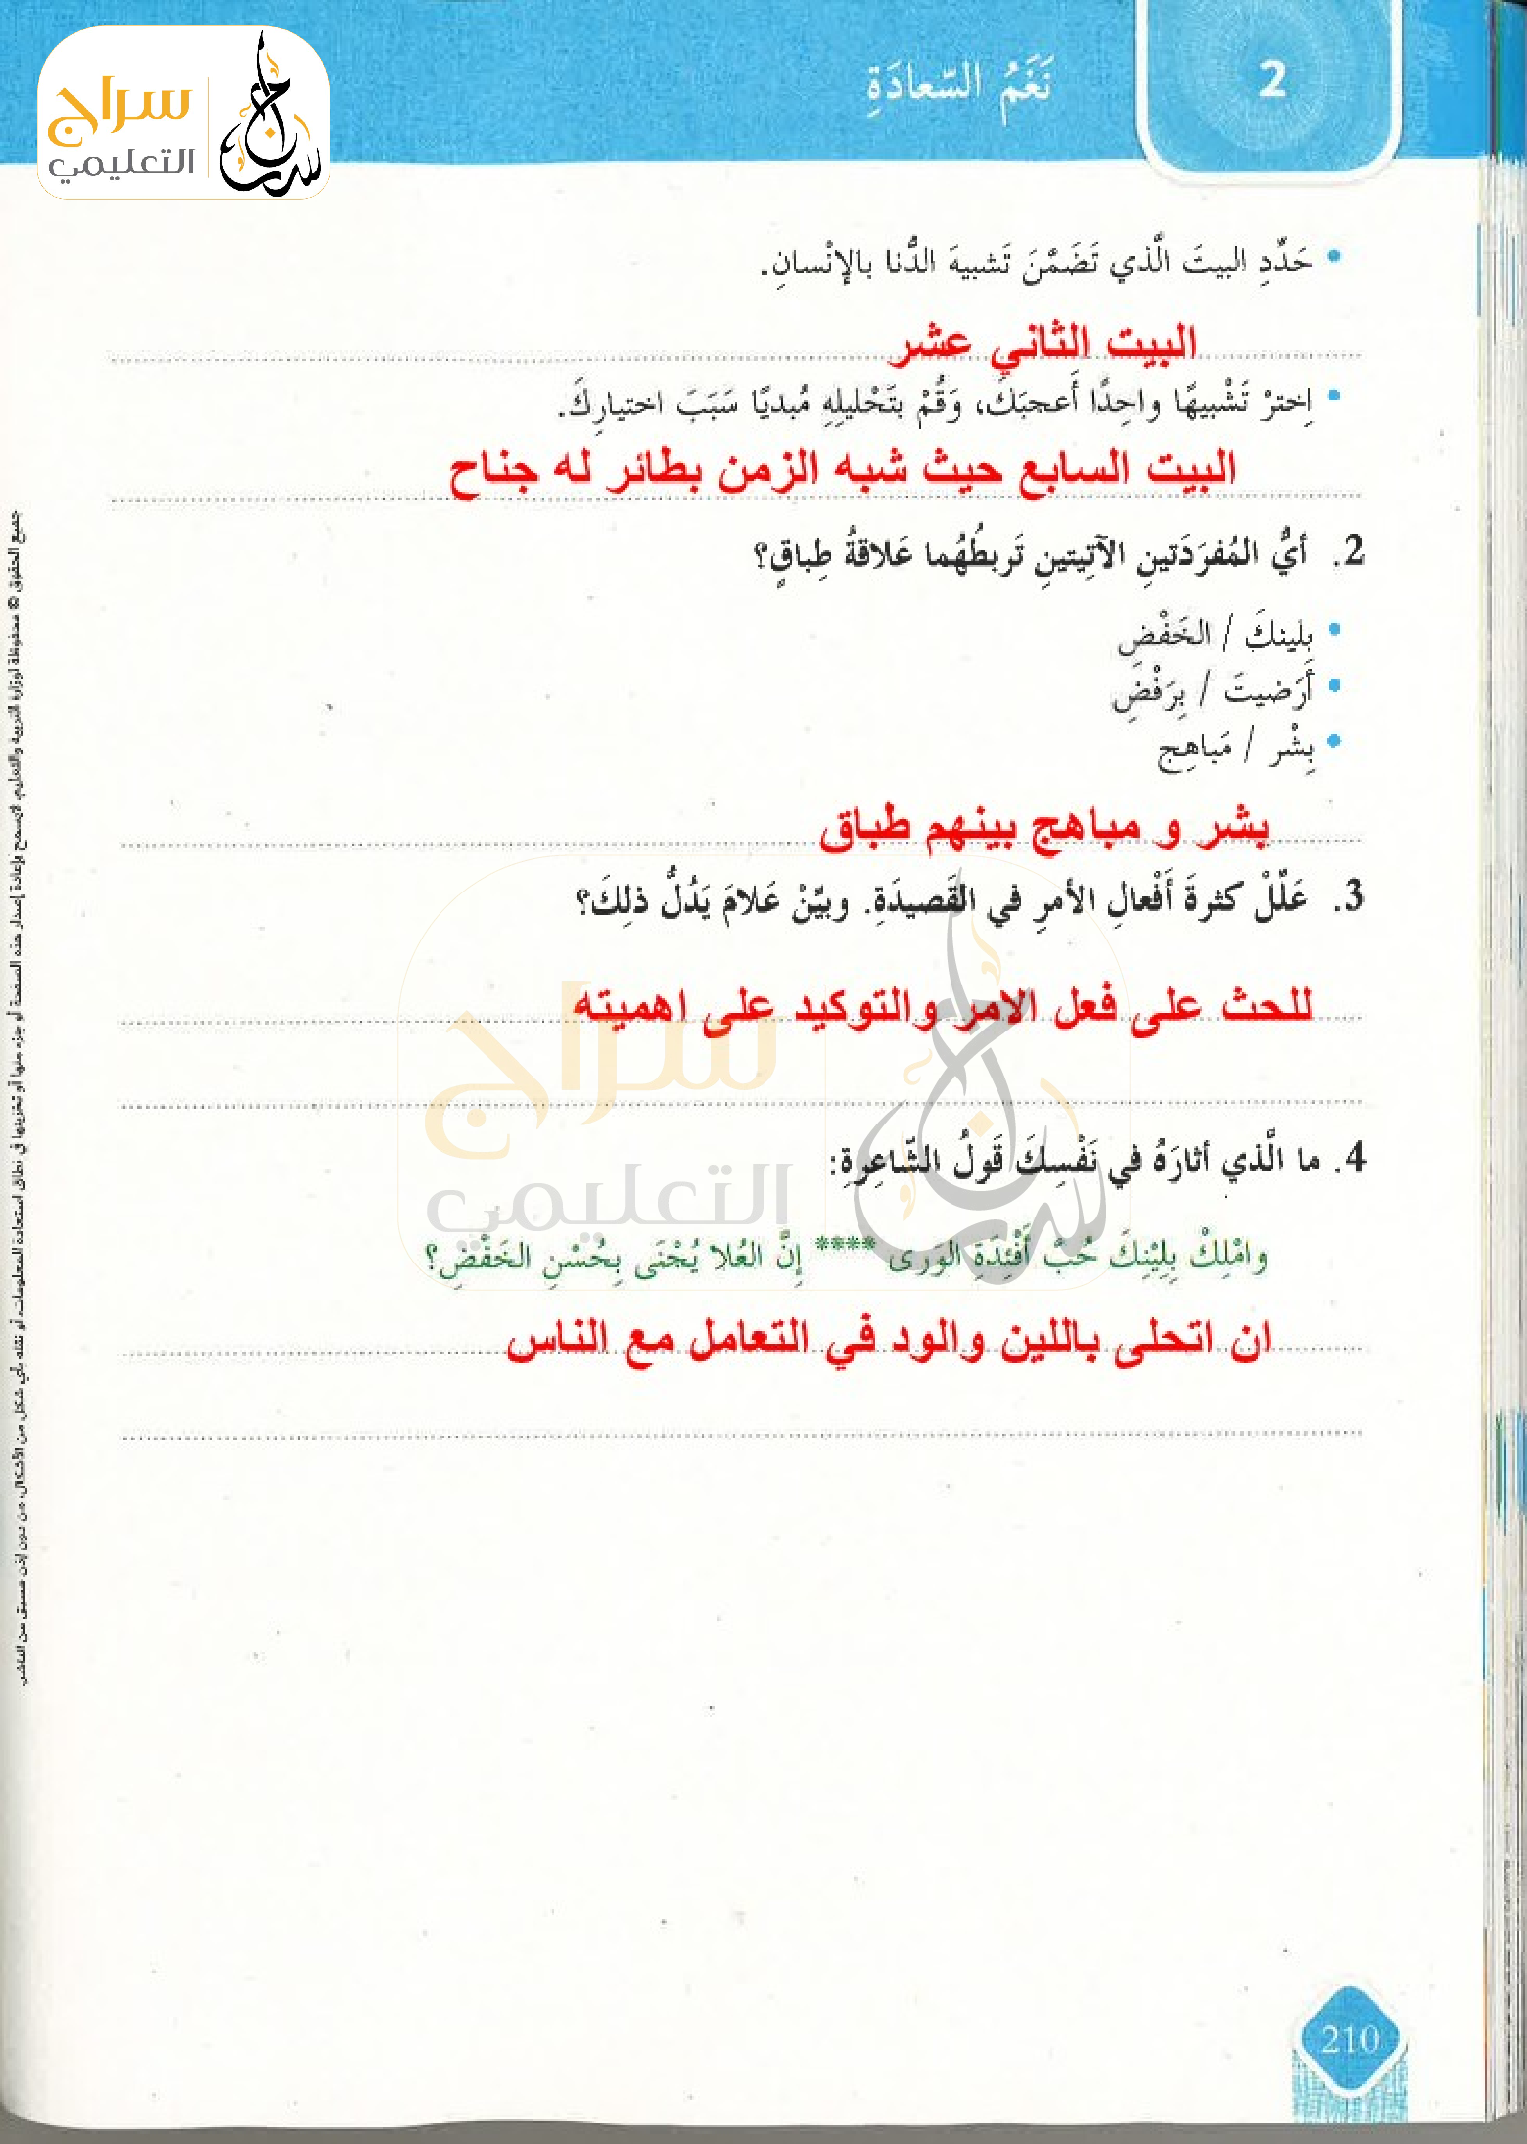 سراج
التعليمي
نَغَمُ السّعادَةِ
2
• حَدِّدِ البيتَ الَّذي تَضَمَّنَ تَشبيهَ الدُّنا بالإنْسانِ.
البيت الثاني عشر
• اِخترْ تَشْبيهًا واحِدًا أَعجبَكَ، وَقُمْ بتَحْليلِهِ مُبديًا سَبَبَ اختيارِكَ.
البيت السابع حيث شبه الزمن بطائر له جناح
2. أيُّ المُفرَدَتينِ الآتِيتينِ تَربطُهُما عَلاقةُ طِباقٍ؟
• بِلينكَ / الخَفْضِ
• أَرَضيتَ / بِرَفْضِ
• بِشْر / مَباهِج
بشر و مباهج بينهم طباق
3. عَلِّلْ كثرةَ أَفْعالِ الأمرِ في القَصيدَةِ. وبيِّنْ عَلامَ يَدُلُّ ذلِكَ؟
للحث على فعل الامر والتوكيد على اهميته
سراج
التعليمي
4. ما الَّذي أثارَهُ في نَفْسِكَ قَولُ الشّاعِرةِ:
وامْلِكْ بِلِيْنِكَ حُبَّ أَفْئِدَةِ الوَرى **** إنَّ العُلا يُجْنَى بِحُسْنِ الخَفْضِ؟
ان اتحلى باللين والود في التعامل مع الناس
جميع الحقوق © محفوظة لوزارة التربية والتعليم. لايسمح بإعادة إصدار هذه الصفحة أو جزء منها أو تخزينها في نطاق استعادة المعلومات، أو نقله بأي شكل من الأشكال، من دون إذن مسبق من الناشر.
210